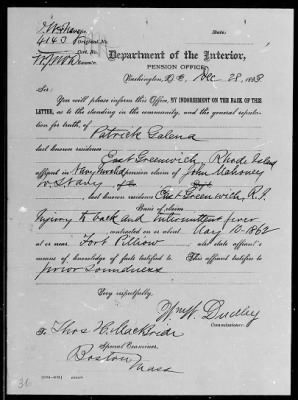 4143 Original No.
Date:
Department of the Interior,
PENSION OFFICE,
Washington, D. C., Dec. 28, 1883
Sir:
You will please inform this Office, BY INDORSEMENT ON THE BACK OF THIS
LETTER, as to the standing in the community, and the general reputa-
tion for truth, of Patrick Galena
last known residence
East Greenwich, Rhode Island
affiant in Navy Invalid pension claim of John Mahoney
U.S. Navy
last known residence East Greenwich, R.I.
Basis of claim
Injury to back and Intermittent fever
contracted on or about May 10-1862
at or near Fort Pillow and state affiant's
means of knowledge of facts testified to. This affiant testifies to
prior soundness
Very respectfully,
Wm W. Dudley
Commissioner.
To Thos H. MacBride
Special Examiner,
Boston
Mass